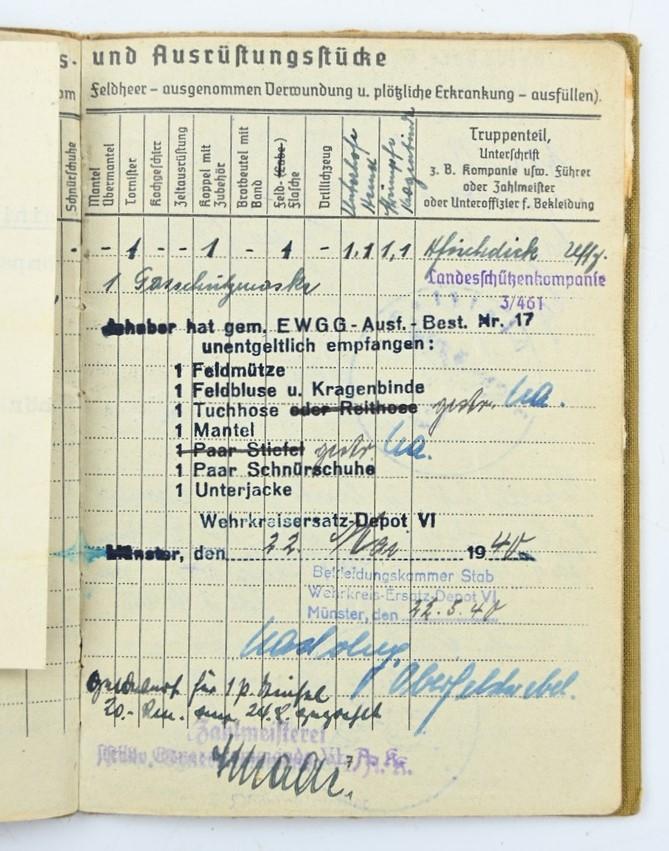 s. und Ausrüstungsstücke
om Feldheer – ausgenommen Verwundung u. plötzliche Erkrankung – ausfüllen).
Schnürschuhe
Mantel
Übermantel
Tornister
Kochgeschirr
Zeltausrüstung
Koppel mit
Zubehör
Brotbeutel mit
Band
Feld- (Labe-)
Flasche
Drillichzeug
Unterhose
Hemd
Strümpfe
Kragenbinde
Truppenteil,
Unterschrift
z. B. Kompanie usw. Führer
oder Zahlmeister
oder Unteroffizier f. Bekleidung
- - 1 - - 1 - 1 - 1, 1 1, 1
1 Gasschutzmaske
Landesschützenkompanie
3/461
Inhaber hat gem. EWGG-Ausf.-Best. Nr. 17
unentgeltlich empfangen:
1 Feldmütze
1 Feldbluse u. Kragenbinde
1 Tuchhose oder Reithose gestr. Ha.
1 Mantel
1 Paar Stiefel gestr. Ha.
1 Paar Schnürschuhe
1 Unterjacke
Wehrkreisersatz-Depot VI
Münster, den 22. Mai 1940
Bekleidungskammer Stab
Wehrkreis-Ersatz-Depot VI
Münster, den 22.5.40
Oberfeldwebel.
für 1 P. Stiefel
20.-
Zahlmeisterei